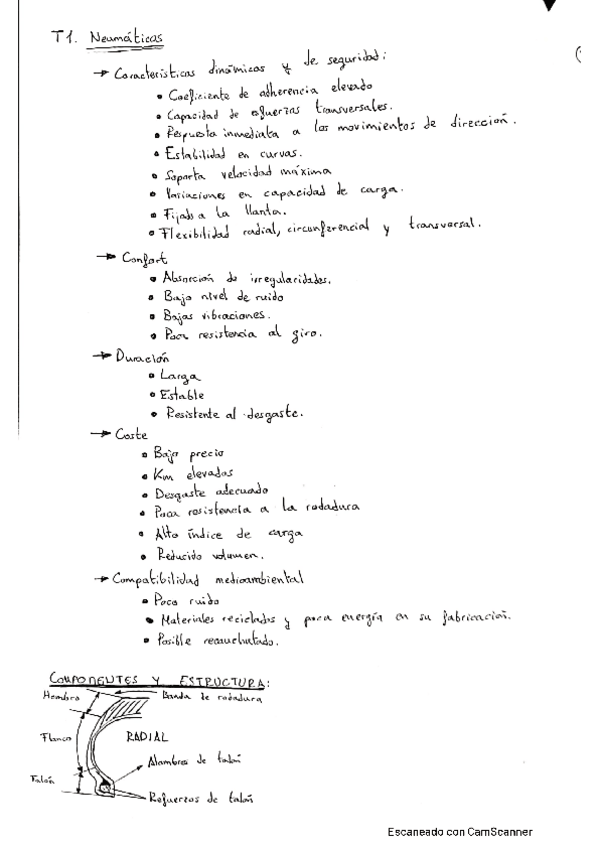 T1. Neumáticos
→ Características dinámicas y de seguridad:
• Coeficiente de adherencia elevado
• Capacidad de esfuerzos transversales.
• Respuesta inmediata a los movimientos de dirección.
• Estabilidad en curvas.
• Soporta velocidad máxima
• Variaciones en capacidad de carga.
• Fijado a la llanta.
• Flexibilidad radial, circunferencial y transversal.
→ Confort
• Absorción de irregularidades.
• Bajo nivel de ruido
• Bajas vibraciones.
• Poca resistencia al giro.
→ Duración
• Larga
• Estable
• Resistente al desgaste.
→ Coste
• Bajo precio
• Km elevados
• Desgaste adecuado
• Poca resistencia a la rodadura
• Alto índice de carga
• Reducido volumen.
→ Compatibilidad medioambiental
• Poco ruido
• Materiales reciclados y poca energía en su fabricación.
• Posible recauchutado.
COMPONENTES Y ESTRUCTURA:
Hombro
Banda de rodadura
Flanco
RADIAL
Alambres de talón
Talón
Refuerzos de talón
Escaneado con CamScanner